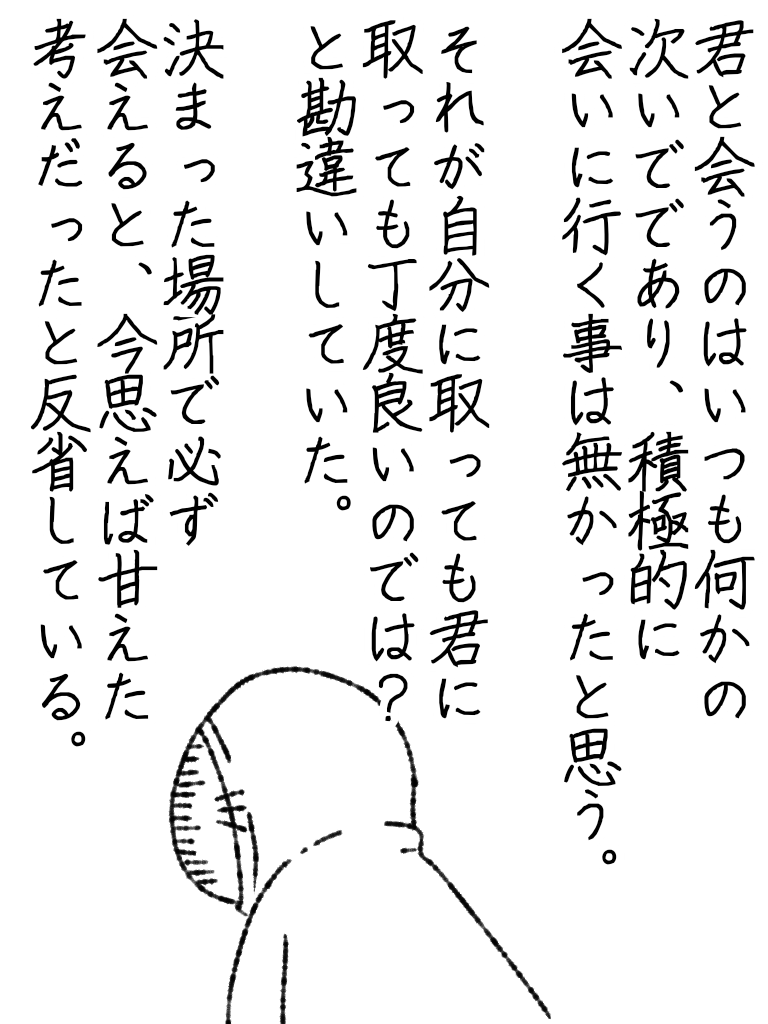 君と会うのはいつも何かの
次いでであり、積極的に
会いに行く事は無かったと思う。
それが自分に取っても君に
取っても丁度良いのでは？
と勘違いしていた。
決まった場所で必ず
会えると、今思えば甘えた
考えだったと反省している。